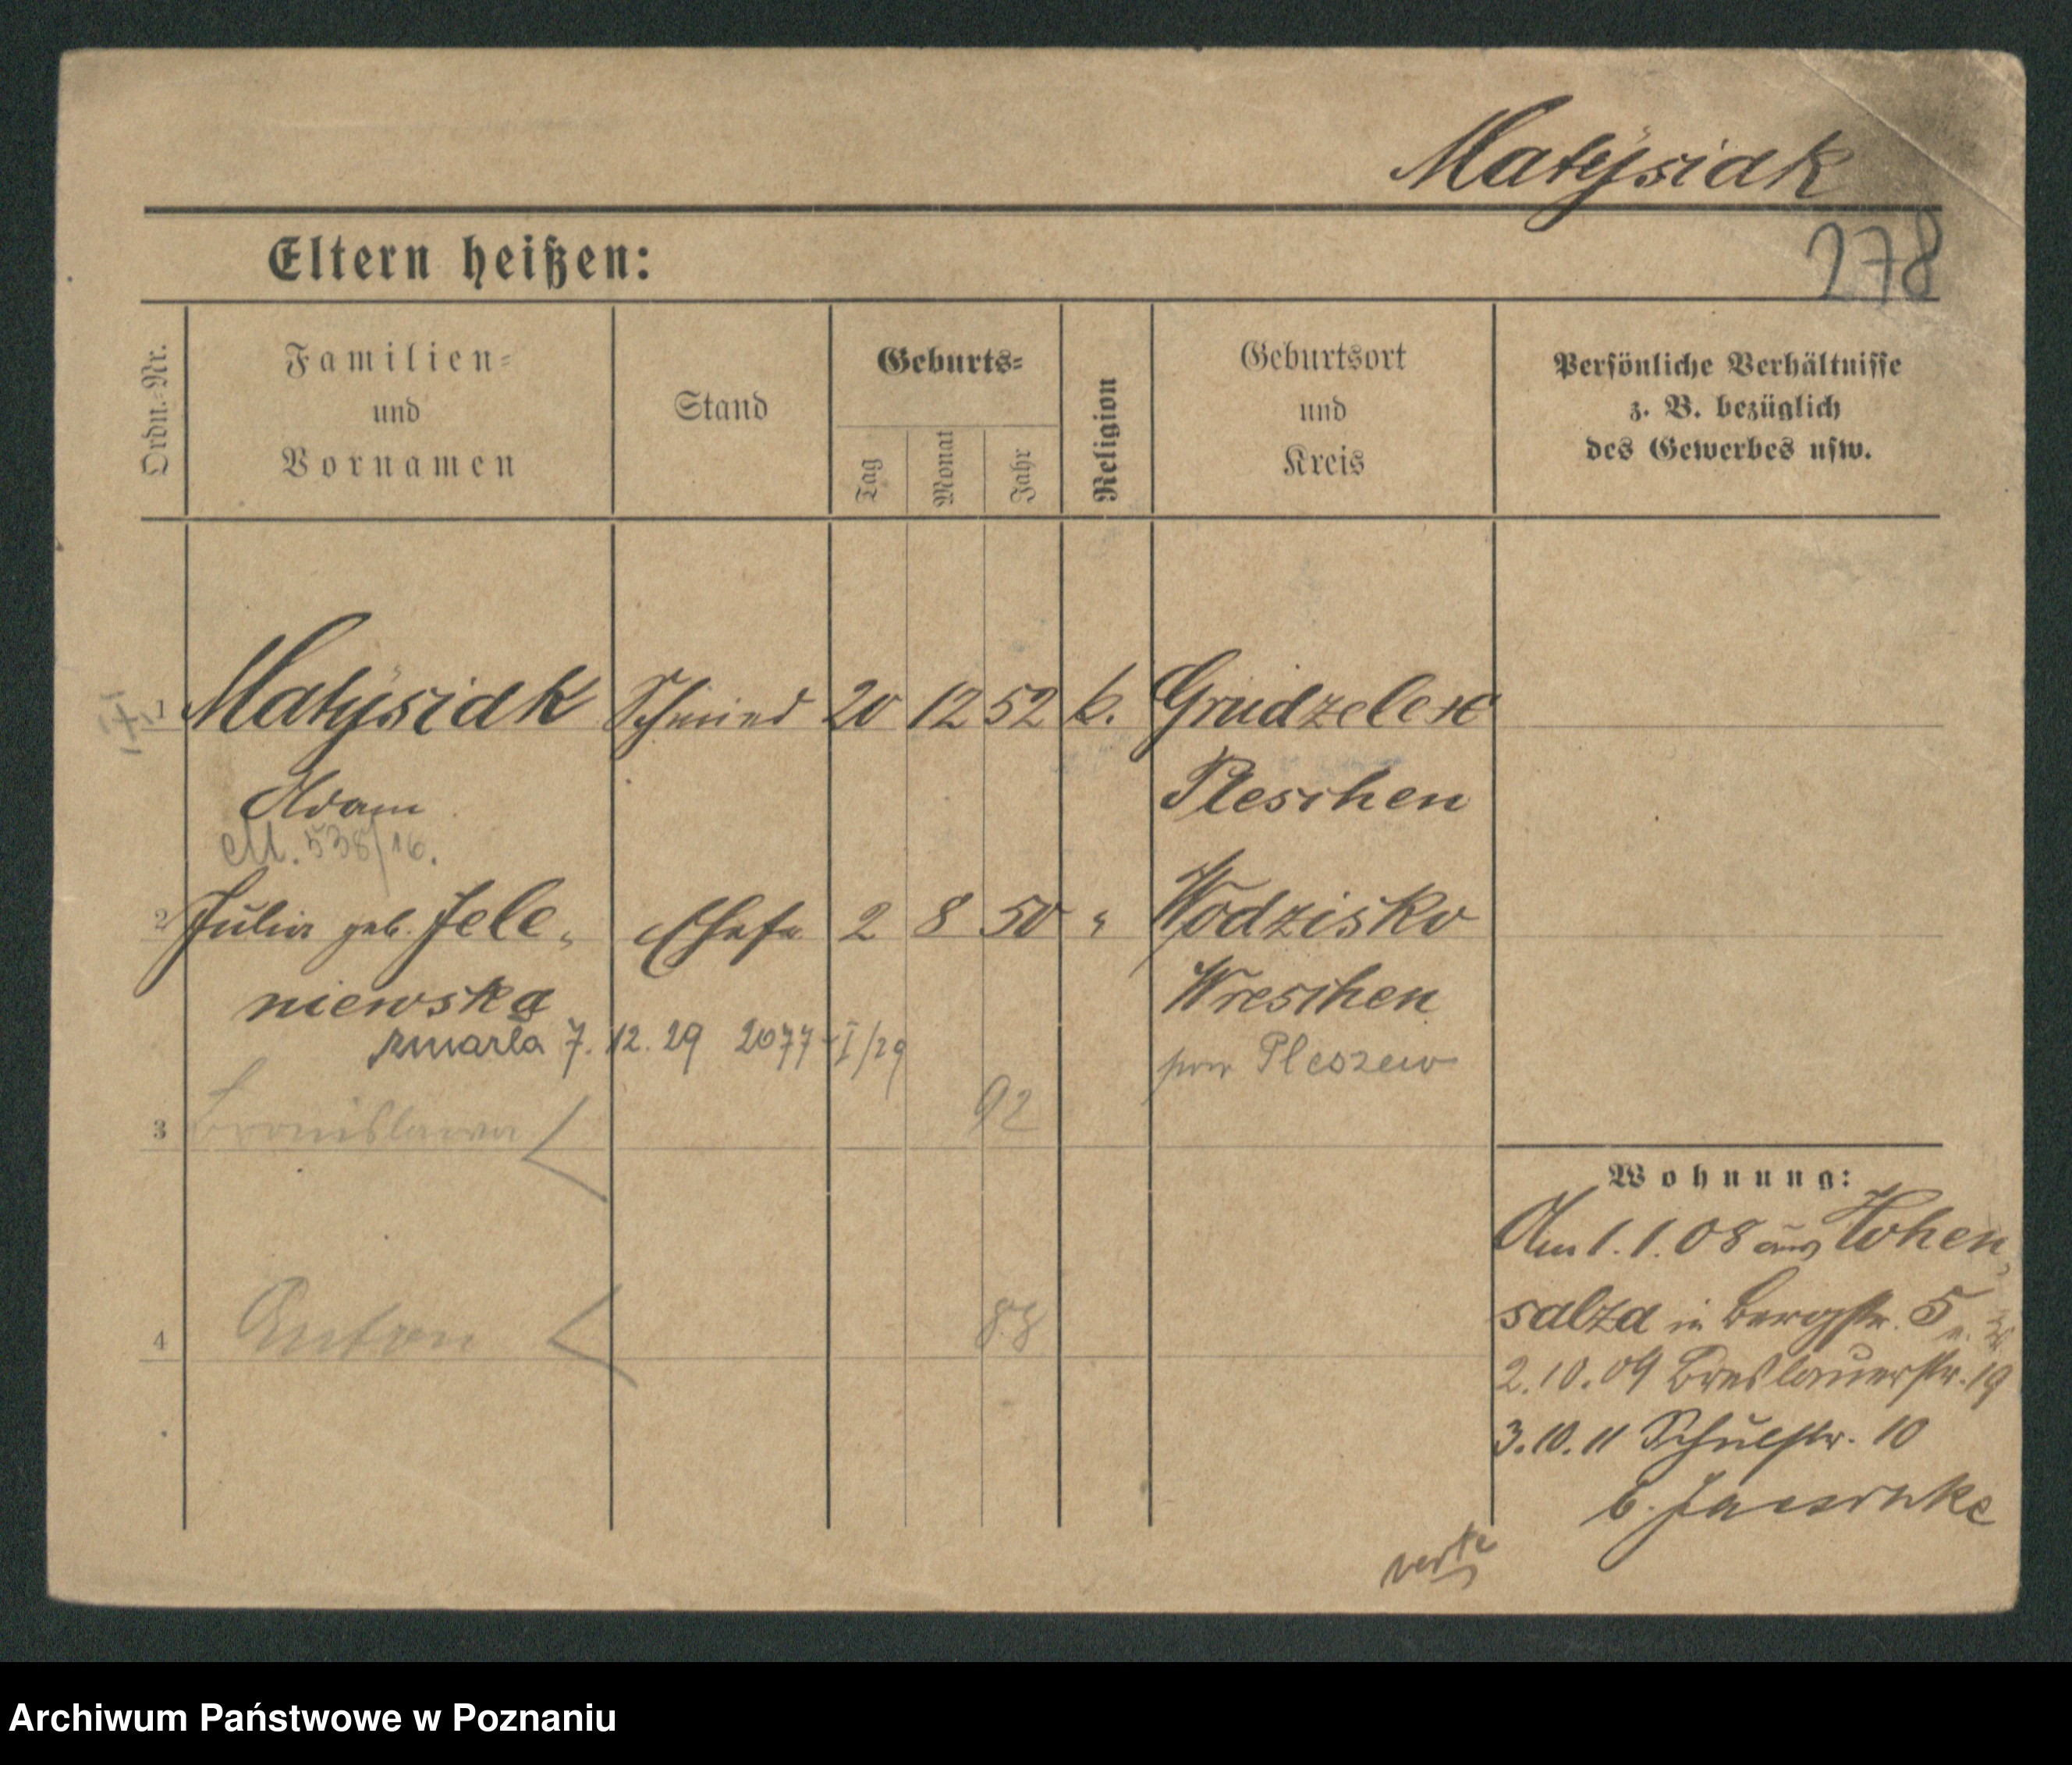 Matÿsiak
278
Eltern heißen:
Ordn.-Nr.
Familien-
und
Vornamen
Stand
Geburts-
Tag
Monat
Jahr
Religion
Geburtsort
und
Kreis
Persönliche Verhältnisse
z. B. bezüglich
des Gewerbes usw.
1 Matÿsiak Schmied 20 12 52 k. Grudzelesc
Adam Pleschen
M. 538/16.
2 Julia geb. Jele- Ehefr 2 8 50 " Wodzisko
niewska Wreschen
zmarła 7.12.29 2077-I/29
pow Pleszew
3 Bronislawa 92
Wohnung:
Am 1.1.08 aus Hohen-
salza in Bergstr. 5
4 Anton 88
2.10.09 Breslauerstr. 19
3.10.11 Schulstr. 10
b.
verte
Archiwum Państwowe w Poznaniu